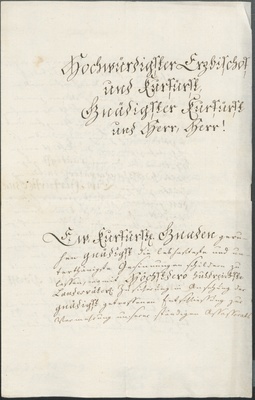 Hochwürdigster Erzbischof
und Kurfürst,
Gnädigster Kurfürst
und Herr, Herr!
Ew. Kurfürstl. Gnaden geru-
hen gnädigst die lebhafteste und un-
terthänigste Gesinnungen schildern zu
lassen, womit Höchstdero huldreichste
Landesväterl. in Ansehung der
gnädigst getroffenen Entschließung zur
Vermehrung unseres ständigen